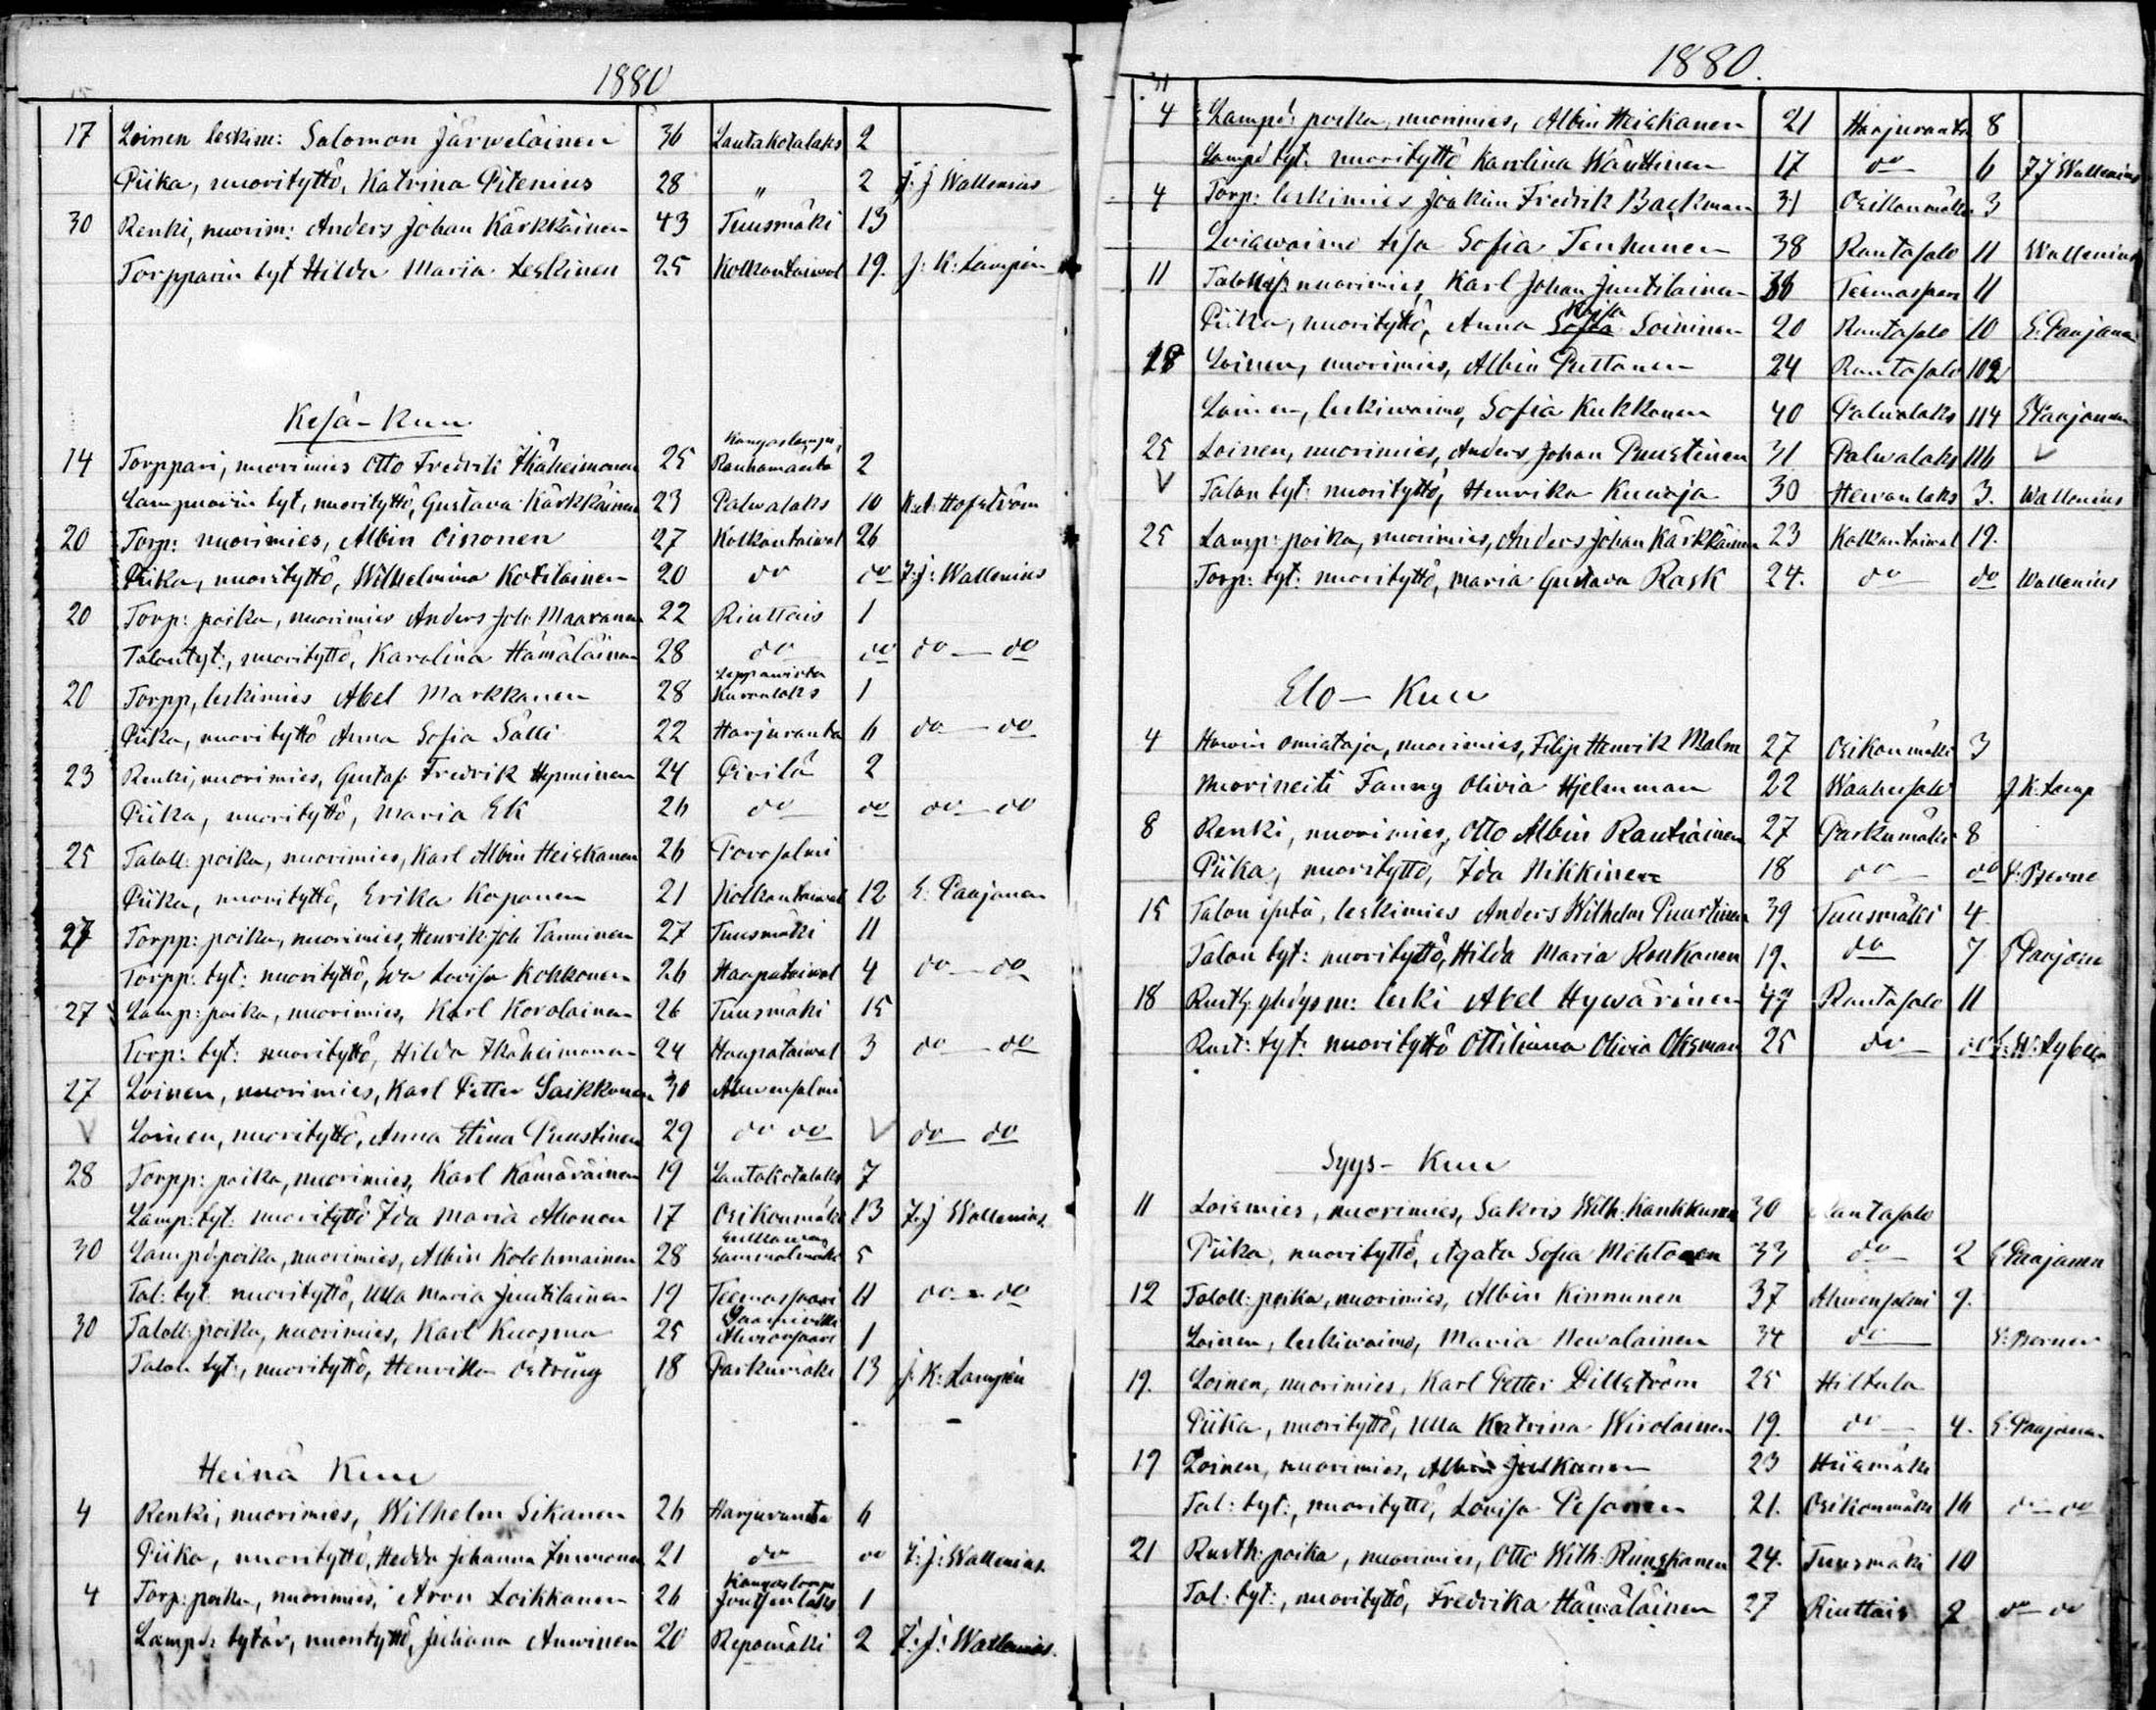 1880
17 Loinen leskim: Salomon Järweläinen 36 Lautakotalaks 2
Piika, nuorityttö, Katrina Pitenius 28 " 2 J: J Wallenius
30 Renki, nuorim: Anders Johan Kärkkäinen 43 Tuusmäki 13
Torpparin tyt Hilda Maria Leskinen 25 Kolkontaiwal 19. J: K: Lampén
Kesä-Kuu
Kangaslampi,
14 Torppari, nuorimies Otto Fredrik Ikäheimonen 25 2
Lampuorin tyt, nuorityttö, Gustava Kärkkäinen 23 Palwalaks 10 Hofström
20 Torp: nuorimies, Albin Oinonen 27 Kolkontaiwal 26
Piika, nuorityttö, Wilhelmina Kotilainen 20 do do J: J: Wallenius
20 Torp: poika, nuorimies Anders Joh. Maaranen 22 Riuttais 1
Talontyt:, nuorityttö, Karolina Hämäläinen 28 do do do — do
Leppäwirta
20 Torpp, leskimies Abel Markkanen 28 1
Piika, nuorityttö Anna Sofia Sälli 22 Harjuranta 6 do — do
23 Renki, nuorimies, Gustaf Fredrik Hynninen 24 Pivilä 2
Piika, nuorityttö, Maria Ek 26 do do do — do
25 Taloll: poika, nuorimies, Karl Albin Heiskanen 26 Porosalmi
Piika, nuorityttö, Erika Koponen 21 Kolkontaiwal 12 E: Paajanen
27 Torpp: poika, nuorimies, Henrik Joh Tanninen 27 Tuusmäki 11
Torpp: tyt: nuorityttö, Ewa Lovisa Kokkonen 26 Haapataiwal 4 do — do
27 Lamp: poika, nuorimies, Karl Korolainen 26 Tuusmäki 15
Torp: tyt: nuorityttö, Hilda Ikäheimonen 24 Haapataiwal 3 do — do
27 Loinen, nuorimies, Karl Petter Laikkonen 30 Ahwensalmi
V Loinen, nuorityttö, Anna Stina Puustinen 29 do do V do — do
28 Torpp: poika, nuorimies, Karl Kämäräinen 19 Lautakotalaks 7
Lamp: tyt: nuorityttö Ida Maria Ahonen 17 Osikonmäki 13 J: J Wallenius
30 Lamp: poika, nuorimies, Albin Kolehmainen 28 5
Tal: tyt: nuorityttö, Ulla Maria Juutilainen 19 Teemassaari 11 do — do
30 Taloll: poika, nuorimies, Karl Kuosma 25 1
Talon tyt:, nuorityttö, Henrika Östring 18 Parkumäki 13 J: K: Lampén
Heinä Kuu
4 Renki, nuorimies, Wilhelm Sikanen 26 Harjuranta 6
Piika, nuorityttö, Hedda Johanna Immonen 21 do do J: J: Wallenius
Kangaslampi
4 Torp: poika, nuorimies, Aron Loikkanen 26 Joutsenlaks 1
Lamp: tytär, nuorityttö, Juliana Auwinen 20 Repomäki 2 J: J: Wallenius.
1880.
4 Lamp: poika, nuorimies, Albin Heiskanen 21 Harjuranta 8
Lamp tyt: nuorityttö Karolina Wänttinen 17 do 6 J J Wallenius
4 Torp: leskimies Joakim Fredrik Backman 31 Osikonmäki 3
Loiswaimo Sofia Tenhunen 38 Rantasalo 11 Wallenius
11 nuorimies, Karl Johan Juutilainen Teemassaari 11
Kaisa
Piika, nuorityttö, Anna Sofia Soininen 20 Rantasalo 10 E: Paajanen
18 Loinen, nuorimies, Albin Puttonen 24 Rantasalo 102
Loinen, leskiwaimo, Sofia Kukkonen 40 Palwalaks 114 E Paajanen
25 Loinen, nuorimies, Anders Johan Puustinen 31 Palwalaks 116 V
V Talon tyt: nuorityttö, Henrika Kuwaja 30 Hewonlaks 3. Wallenius
25 Lamp: poika, nuorimies, Anders Johan Kärkkäinen 23 Kolkontaiwal 19.
Torp: tyt: nuorityttö, Maria Gustava Rask 24. do do Wallenius
Elo-Kuu
4 Howin omistaja, nuorimies, Filip Henrik Malm 27 Osikonmäki 3
Nuorineiti Fanny Olivia Hjelmman 22 Waahersalo J K: Lamp
8 Renki, nuorimies, Otto Albin Rautiainen 27 Parkumäki 8
Piika, nuorityttö, Ida Nikkinen 18 do do
15 Talon isäntä, leskimies Anders Wilhelm Puustinen 39 Tuusmäki 4
Talon tyt: nuorityttö, Hilda Maria Ronkanen 19. do 7 Paajane
18 Rusth: yhtiösm: leski Abel Hywärinen 47 Rantasalo 11
Rust: tyt: nuorityttö Ottiliana Olivia Oksman 25 do do
Syys-Kuu
11 Loismies, nuorimies, Sakris Wilh: Kankkunen 30 Rantasalo
Piika, nuorityttö, Agata Sofia Mehtonen 33 do 2 E Paajanen
12 Taloll: poika, nuorimies, Albin Kinnunen 37 Ahwensalmi 9.
Loinen, leskiwaimo, Maria Newalainen 34 do E: Berner
19. Loinen, nuorimies, Karl Petter Dillström 25 Hiltula
Piika, nuorityttö, Ulla Katrina Wirolainen 19. do 4. E: Paajanen
19 Loinen, nuorimies, Albin Julkunen 23 Hiismäki
Tal: tyt:, nuorityttö, Lovisa Pesonen 21. Osikonmäki 16 do — do
21 Rusth: poika, nuorimies, Otto Wilh: Ruuskanen 24. Tuusmäki 10
Tal: tyt:, nuorityttö, Fredrika Hämäläinen 27 Riuttais 2 do — do